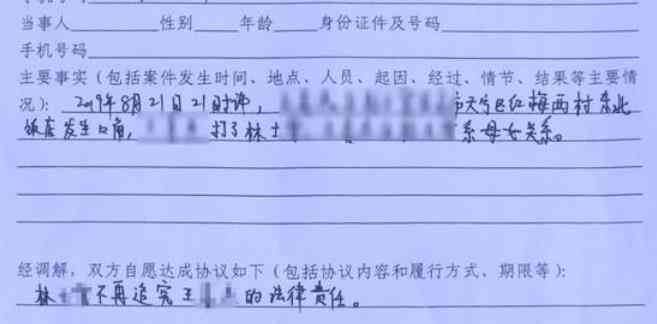 当事人 性别 年龄 身份证件及号码
手机号码
主要事实（包括案件发生时间、地点、人员、起因、经过、情节、结果等主要情
况）：2019年8月21日21时许， 市天宁区红梅西村东北
饭店发生口角， 打了林士 系母女关系。
经调解，双方自愿达成协议如下（包括协议内容和履行方式、期限等）：
林 不再追究王 的法律责任。